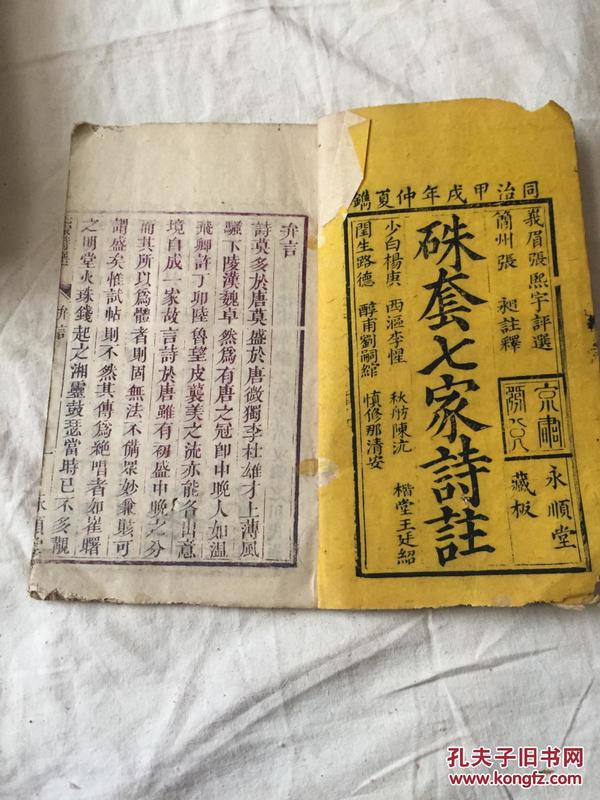 同治甲戌年仲夏鐫
峩眉張熙宇評選
簡州張昶註釋
硃套七家詩註
少白楊庚
西漚李惺
秋舫陳沆
楷堂王廷紹
閏生路德
醇甫劉嗣綰
慎修那清安
京都
永順堂
藏板
弁言
詩莫多於唐莫盛於唐微獨李杜雄才上薄風
騷下陵漢魏卓然為有唐之冠即中晚人如溫
飛卿許丁卯陸魯望皮襲美之流亦能各出意
境自成一家故言詩於唐雖有初盛中晚之分
而其所以為體者則固無法不備眾妙兼賅可
謂盛矣惟試帖則不然其傳為絕唱者如崔曙
之明堂火珠錢起之湘靈鼓瑟當時已不多覯
弁言
孔夫子旧书网
www.kongfz.com